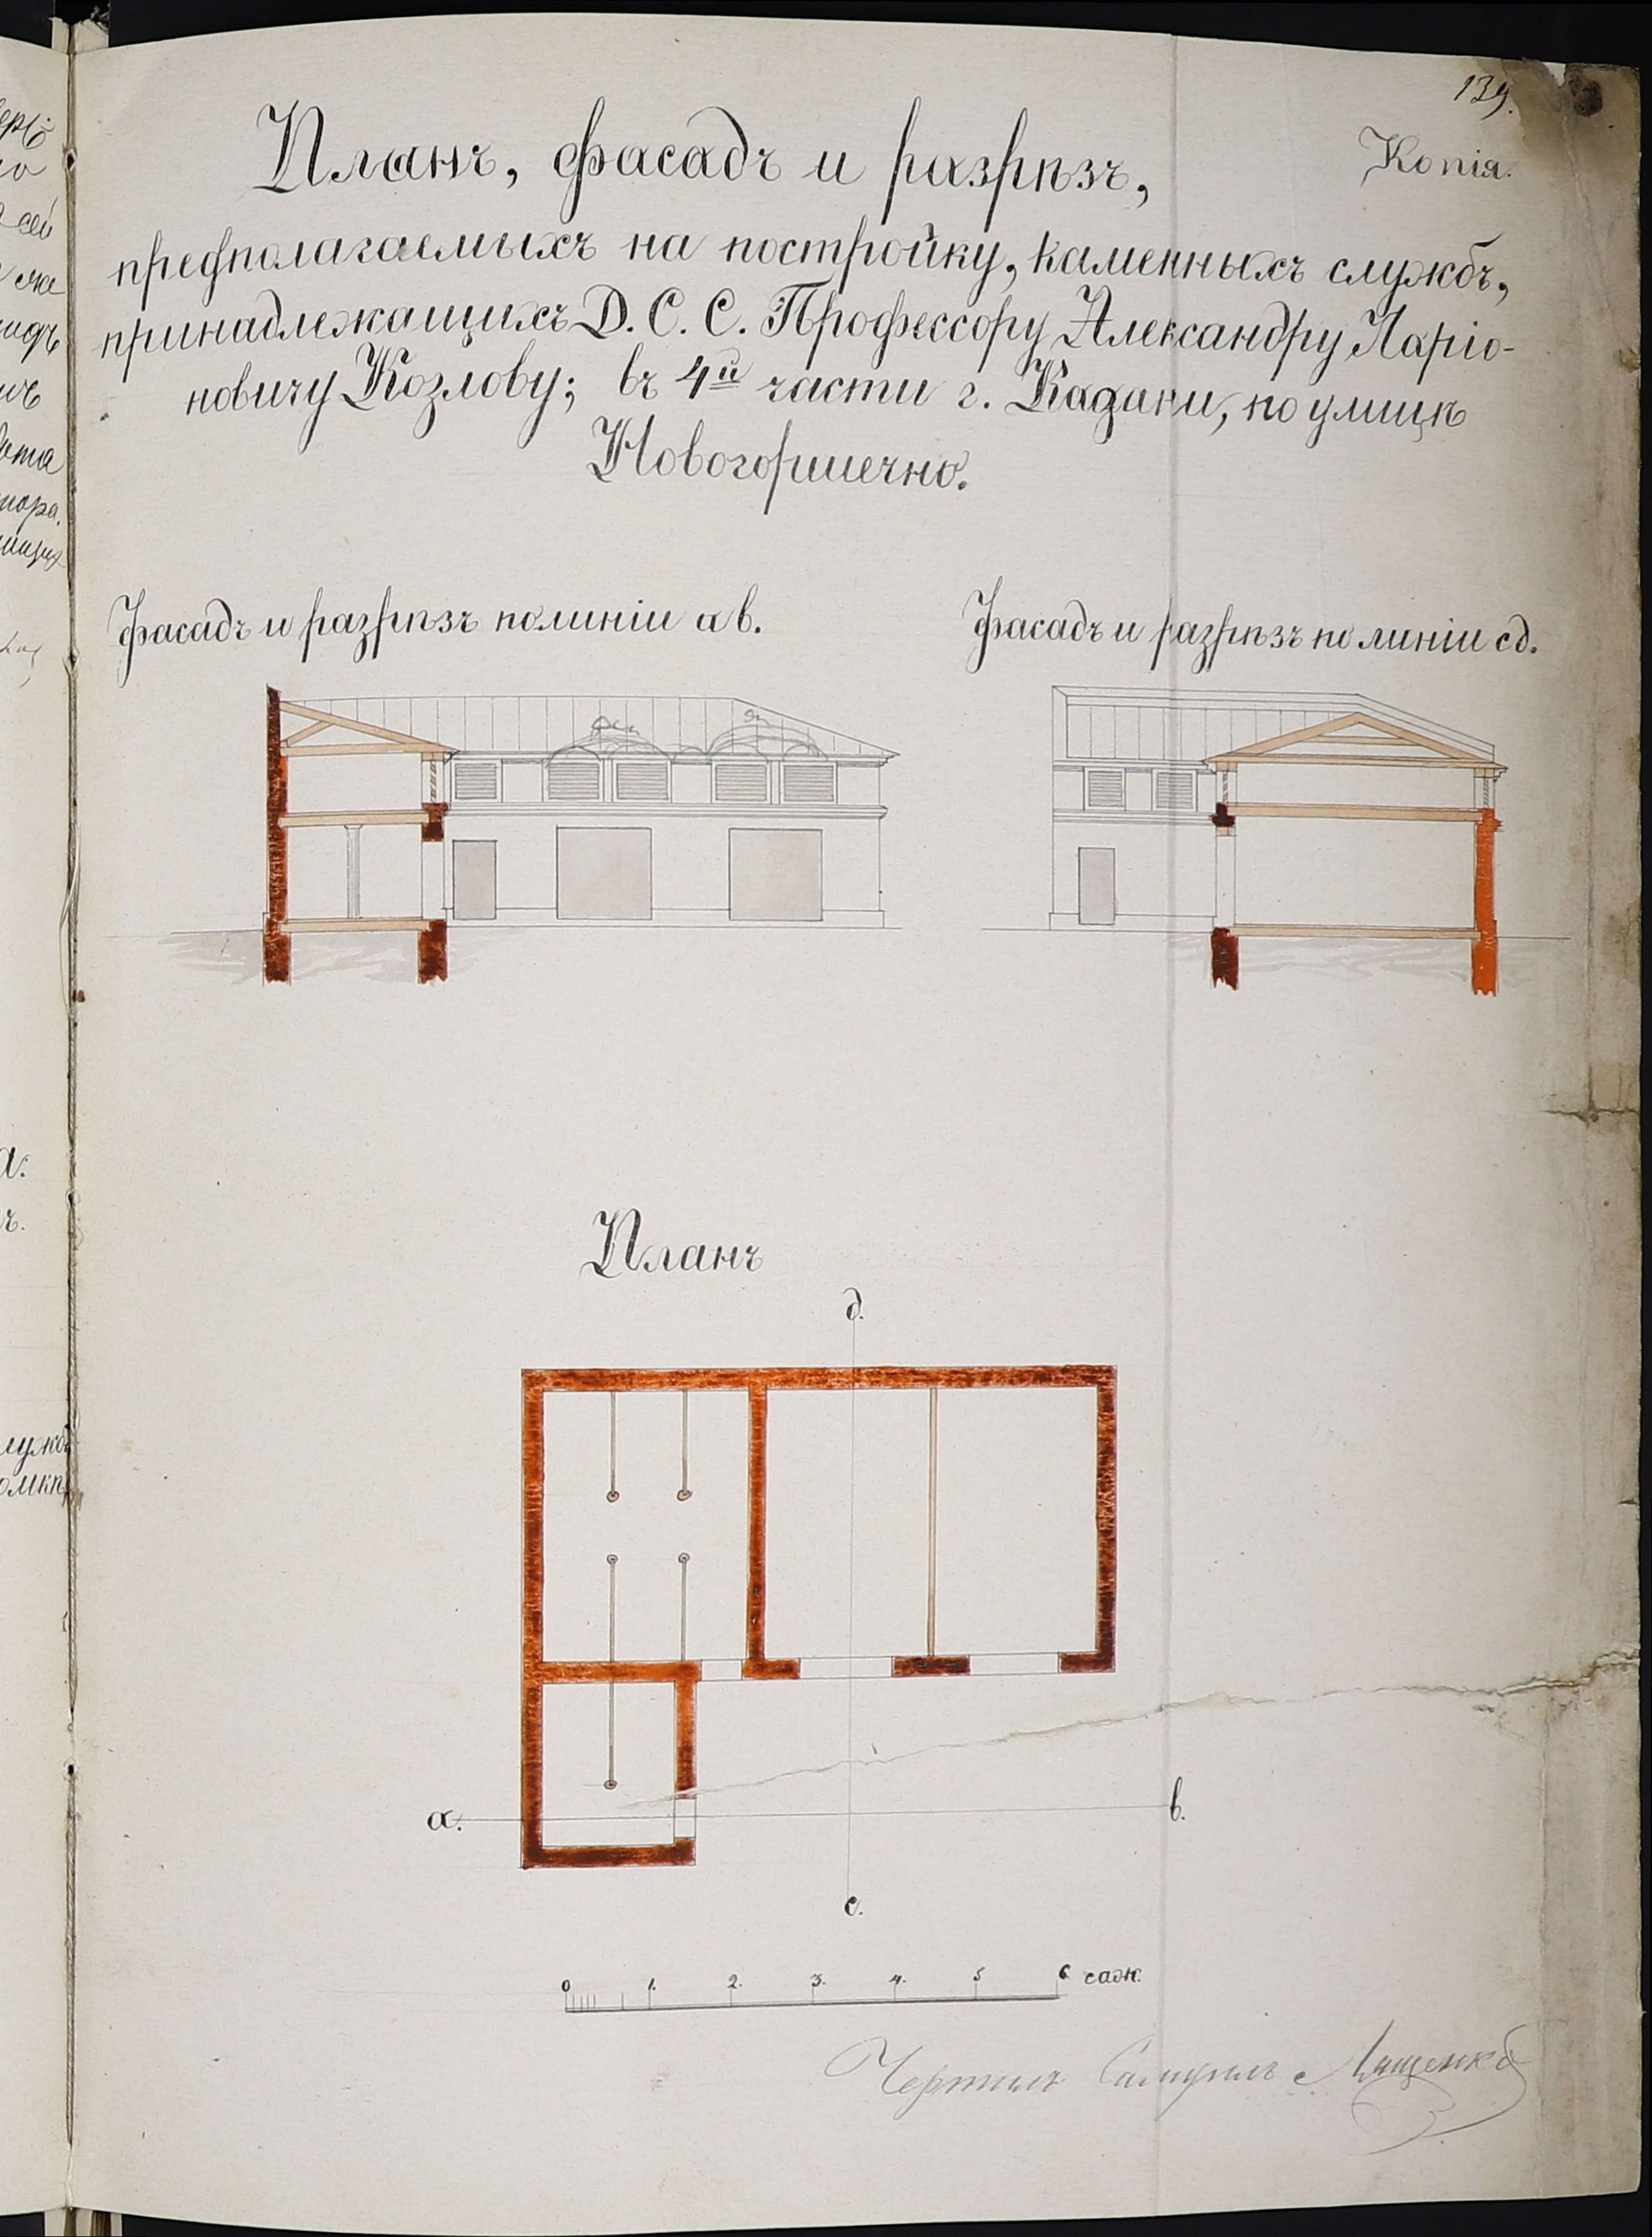 139.
Копія.
Планъ, фасадъ и разрѣзъ,
предполагаемыхъ на постройку, каменныхъ службъ,
принадлежащихъ Д. С. С. Профессору Александру Ларіо-
новичу Козлову; въ 4й части г. Казани, по улицѣ
Новогоршечно.
Фасадъ и разрѣзъ по линіи ав.
Фасадъ и разрѣзъ по линіи сд.
Планъ
д.
а.
в.
с.
0 1. 2. 3. 4. 5 6 саж.
Чертилъ Самуилъ